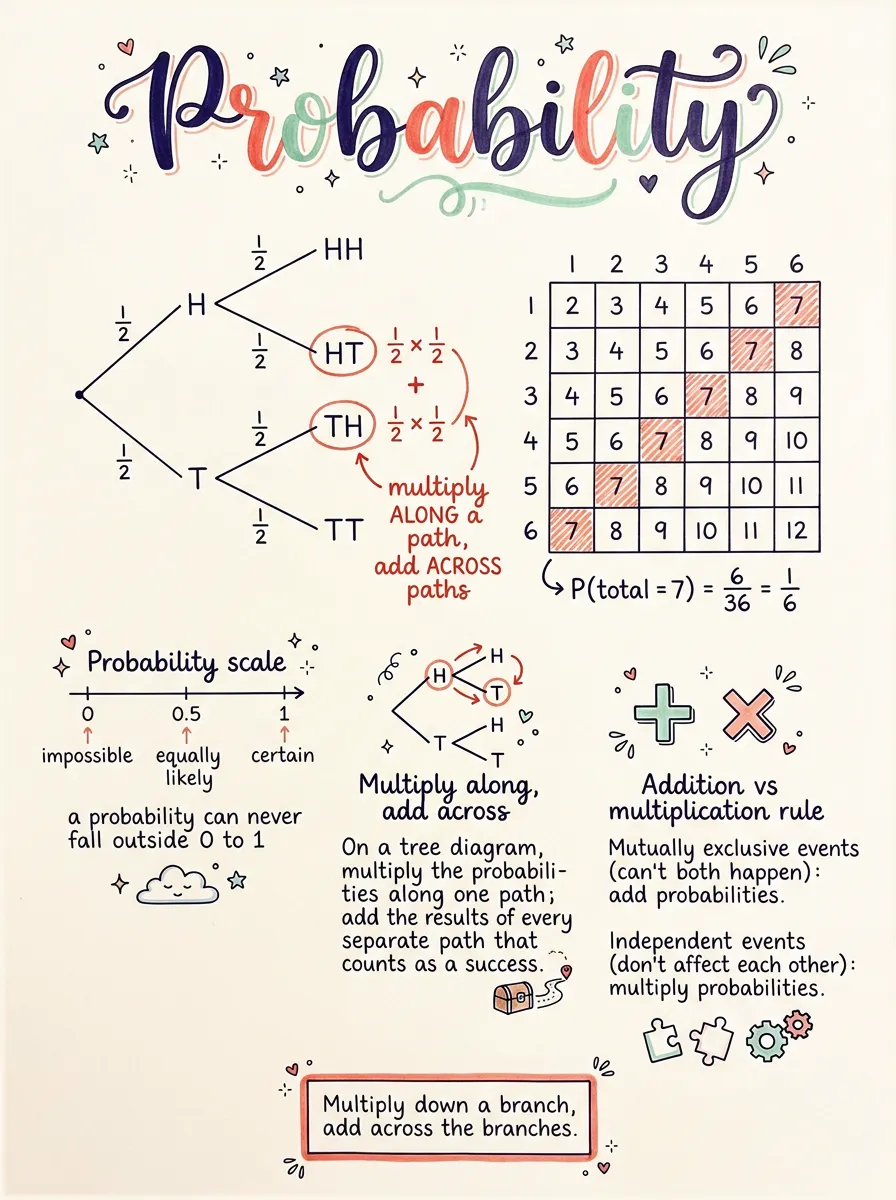 Probability
1/2
HH
1/2
H
1/2
HT
1/2 × 1/2
+
1/2
T
1/2
TH
1/2 × 1/2
1/2
TT
multiply
ALONG a
path,
add ACROSS
paths
1 2 3 4 5 6
1 2 3 4 5 6 7
2 3 4 5 6 7 8
3 4 5 6 7 8 9
4 5 6 7 8 9 10
5 6 7 8 9 10 11
6 7 8 9 10 11 12
P(total = 7) = 6/36 = 1/6
Probability scale
0 0.5 1
impossible equally likely certain
a probability can never
fall outside 0 to 1
H
H
T
T
H
T
Multiply along,
add across
On a tree diagram,
multiply the probabili-
ties along one path;
add the results of every
separate path that
counts as a success.
Addition vs
multiplication rule
Mutually exclusive events
(can't both happen):
add probabilities.
Independent events
(don't affect each other):
multiply probabilities.
Multiply down a branch,
add across the branches.